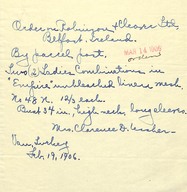 Order on Robinson & Cleaver Ltd.
Belfast, Ireland.
MAR 14 1906
ordered
By parcel post.
Two (2) Ladies Combinations in
"Empire" unbleached linen mesh
No 48 N. 12/3 each.
Bust 34 in., high neck, long sleeves.
Mrs. Clarence D. Ussher
Van, Turkey
Feb. 19, 1906.